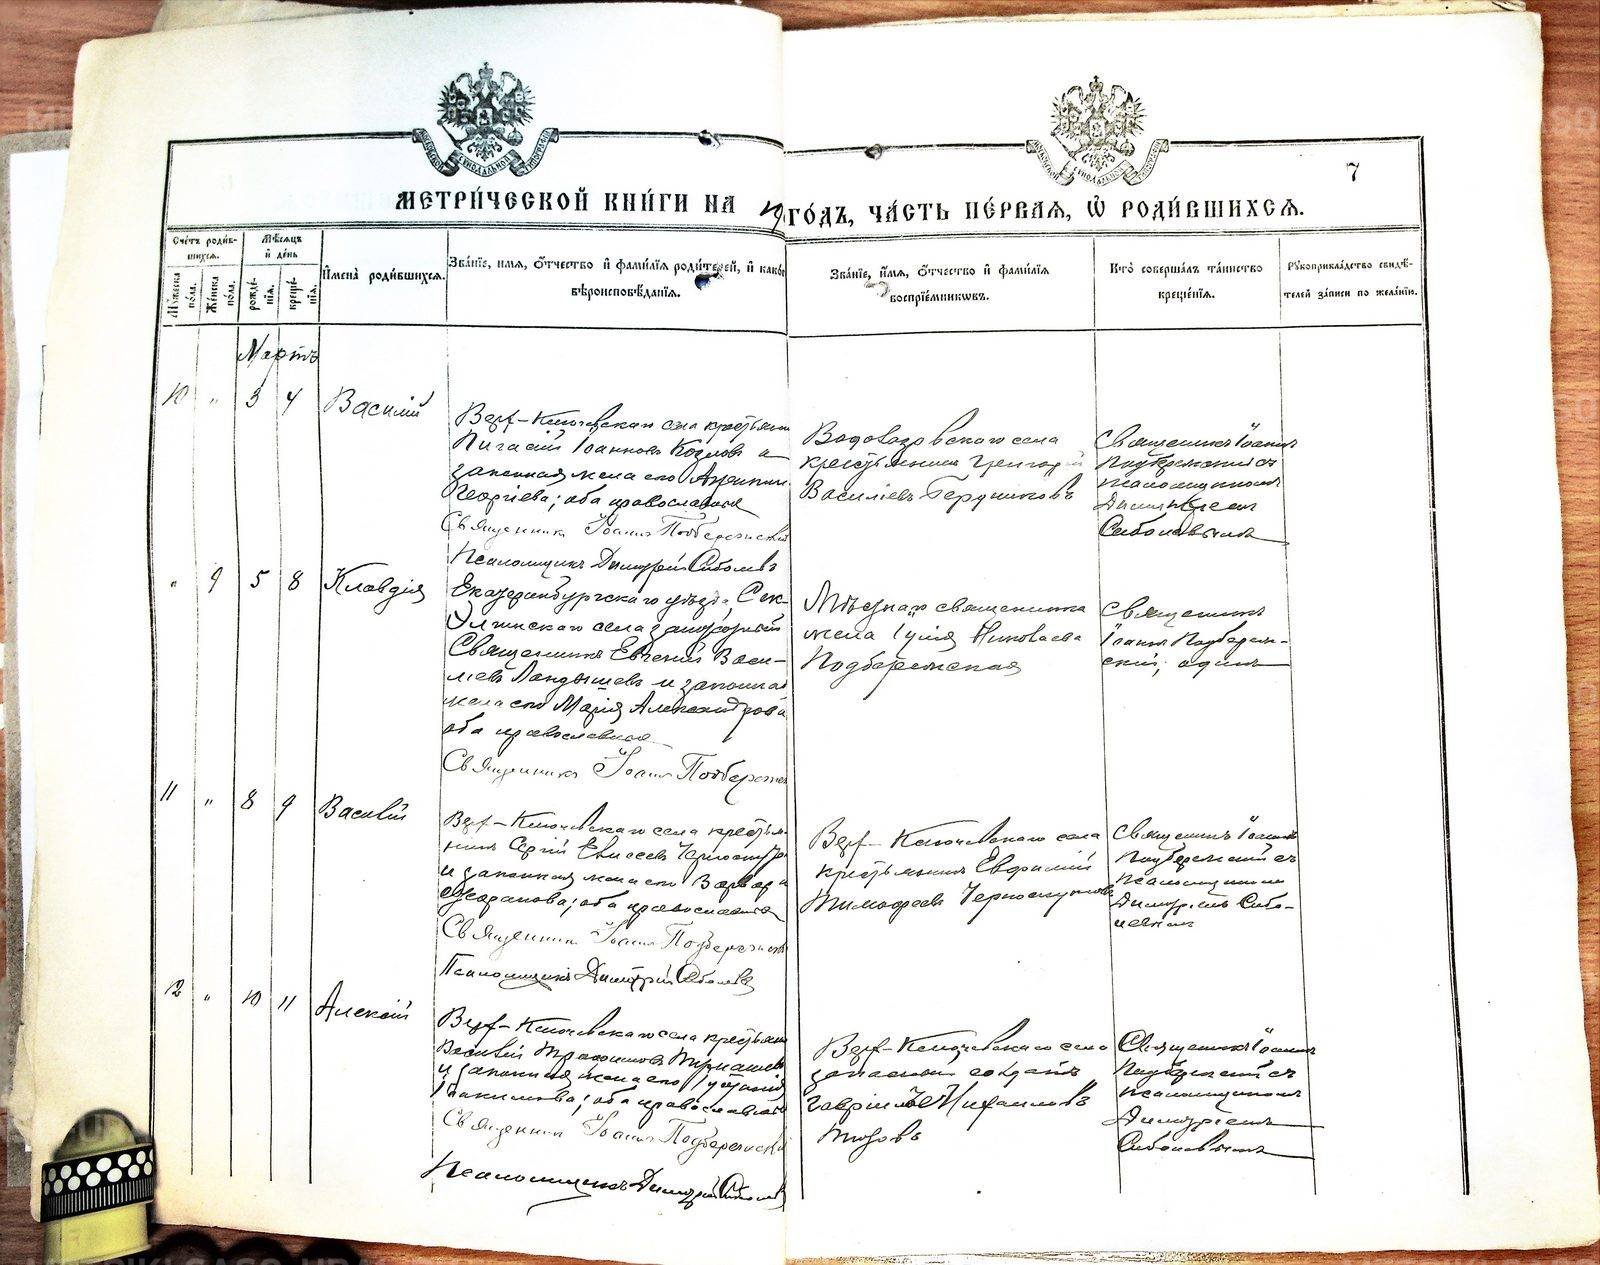 МОСКОВСКОЙ СИНОДАЛЬНОЙ ТИПОГРАФІИ
МОСКОВСКОЙ СИНОДАЛЬНОЙ ТИПОГРАФІИ
7
МЕТРИ́ЧЕСКОЙ КНИ́ГИ НА 19 ГО́ДЪ, ЧА́СТЬ ПЕ́РВАЯ, Ѡ҆ РОДИ́ВШИХСЯ.
Сче́тъ роди́в-
шихся.
Мѣ́сяцъ
и҆ де́нь
Му́жеска по́ла.
Же́нска по́ла.
рожде́-
нїя.
креще́-
нїя.
И҆мена̀ роди́вшихся.
Зва́нїе, и҆мя, о҆́тчество и҆ фами́лїя роди́телей, и҆ како́г
вѣроисповѣ́данїя.
Зва́нїе, и҆́мя, о҆́тчество и҆ фами́лїя
воспрїе́мникѡвъ.
Кто̀ соверша́лъ та́инство
креще́нїя.
Рꙋкоприкла́дство свидѣ́-
телей за́писи по жела́нїю.
Мартъ
10 " 3 4 Василій
Верх-Ключевскаго села крестьянин
Пигасій Іоанновъ Козловъ и
законная жена его
Георгіева; оба православные
Священникъ Іоаннъ Подбережскій
Псаломщикъ Димитрій Соболевъ
Водовозовскаго села
крестьянинъ Григорій
Василіевъ Бердниковъ
Священникъ Іоаннъ
Подбережскій съ
псаломщикомъ
Димитріемъ
Соболевымъ
" 9 5 8 Клавдія
Екатеринбургскаго уѣзда,
села заштатный
Священникъ Евгеній Васи-
ліевъ Ландышевъ и законная
жена его Марія Александрова,
оба православные
Священникъ Іоаннъ Подбережск
Мѣстнаго священника
жена Іулія Николаева
Подбережская
Священникъ
Іоаннъ Подбереж-
скій, одинъ
11 " 8 9 Василій
Верх-Ключевскаго села крестья-
нинъ Сергій Елисеевъ Черноскутов
и законная жена его Варвара
оба православные
Священникъ Іоаннъ Подбережскій
Псаломщикъ Димитрій Соболевъ
Верх-Ключевскаго села
крестьянинъ Евфимій
Тимофеевъ Черноскутовъ
Священникъ Іоаннъ
Подбережскій съ
псаломщикомъ
Димитріемъ Собо-
левымъ
12 " 10 11 Алексій
Верх-Ключевскаго села крестьянин
Василій Трофимовъ
и законная жена его Іустинія
Іоакимова; оба православные
Священникъ Іоаннъ Подбережскій
Псаломщикъ Димитрій Соболевъ
Верх-Ключевскаго села
запасный солдатъ
Гавріилъ Михаиловъ
Титовъ
Священникъ Іоаннъ
Подбережскій съ
псаломщикомъ
Димитріемъ
Соболевымъ